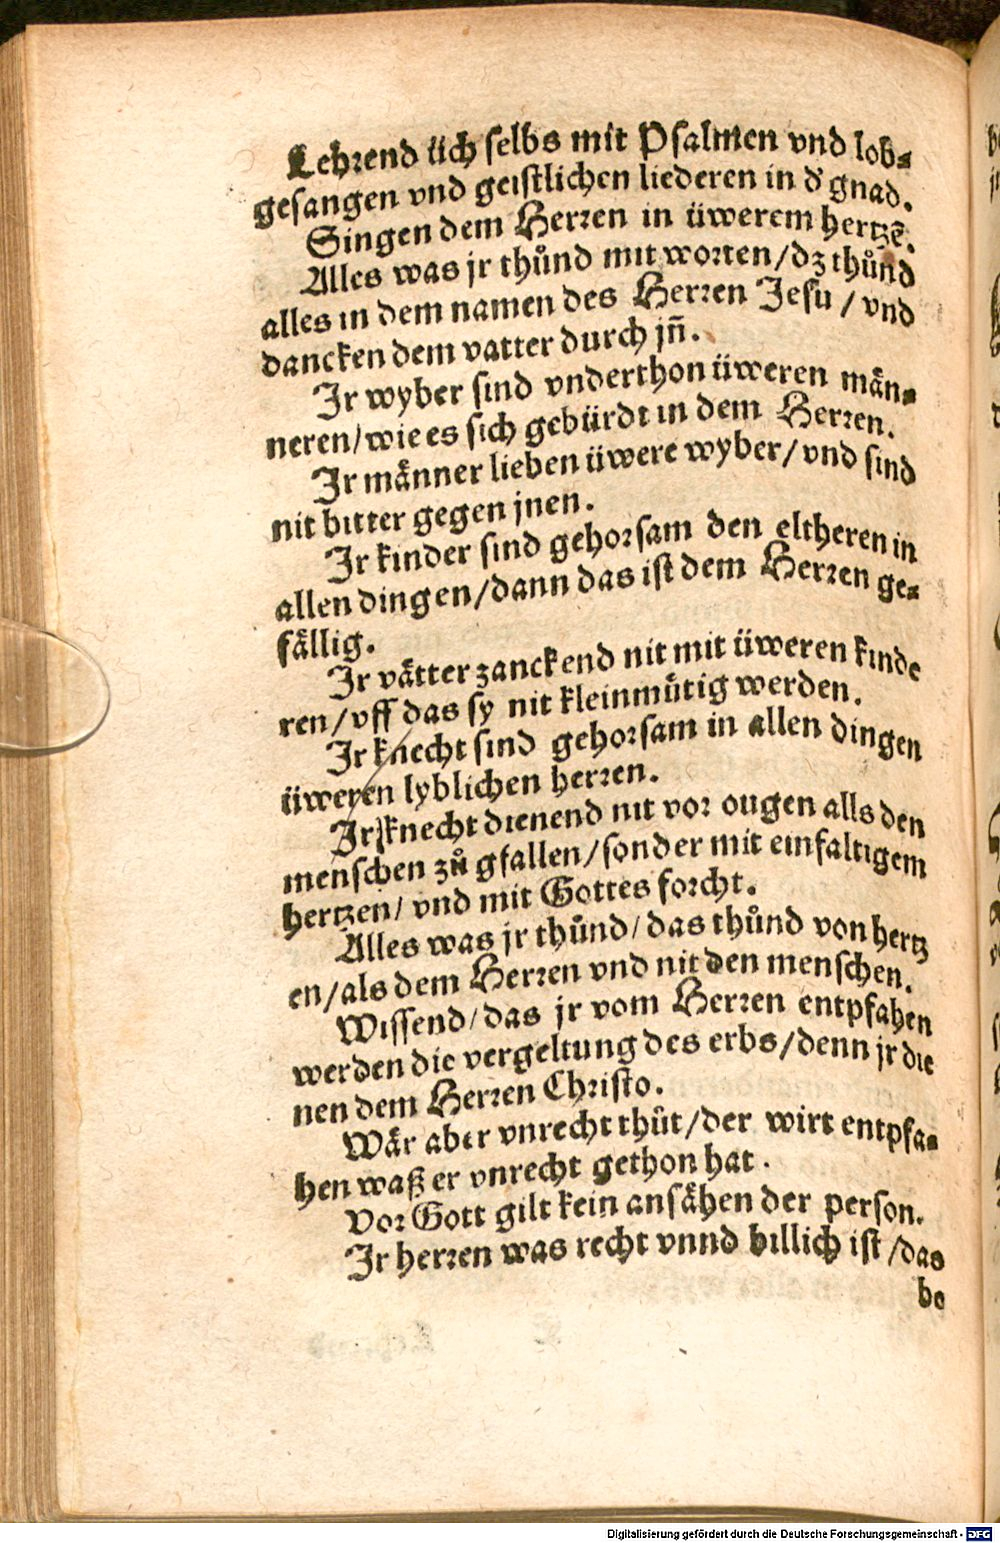 Lehrend üch selbs mit Psalmen vnd lob⸗
gesangen vnd geistlichen liederen in d' gnad.
Singen dem Herren in üwerem hertzē.
Alles was jr thůnd mit worten/dz thůnd
alles in dem namen des Herren Jesu / vnd
dancken dem vatter durch jñ.
Ir wyber sind vnderthon üweren män⸗
neren/wie es sich gebürdt in dem Herren.
Ir männer lieben üwere wyber/vnd sind
nit bitter gegen jnen.
Ir kinder sind gehorsam den eltheren in
allen dingen/dann das ist dem Herren ge⸗
fällig.
Ir vätter zanckend nit mit üweren kinde
ren/vff das sy nit kleinmütig werden.
Ir knecht sind gehorsam in allen dingen
üweren lyblichen herren.
Ir knecht dienend nit vor ougen alls den
menschen zů gfallen/sonder mit einfaltigem
hertzen/ vnd mit Gottes forcht.
Alles was jr thůnd/das thůnd von hertz
en/als dem Herren vnd nit den menschen.
Wissend/das jr vom Herren entpfahen
werden die vergeltung des erbs/denn jr die
nen dem Herren Christo.
Wär aber vnrecht thůt/der wirt entpfa⸗
hen waß er vnrecht gethon hat.
Vor Gott gilt kein ansähen der person.
Ir herren was recht vnnd billich ist /das
be
Digitalisierung gefördert durch die Deutsche Forschungsgemeinschaft - DFG